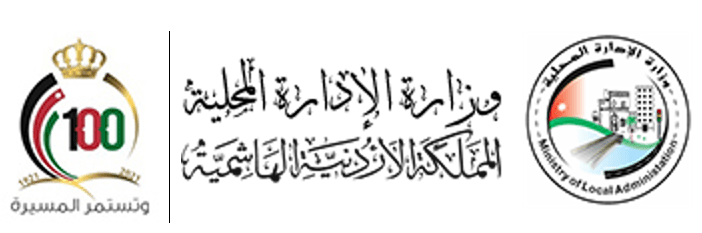 وزارة الإدارة المحلية
Ministry of Local Administration
وزارة الإدارة المحلية
المملكة الأردنية الهاشمية
100
1921 2021
وتستمر المسيرة